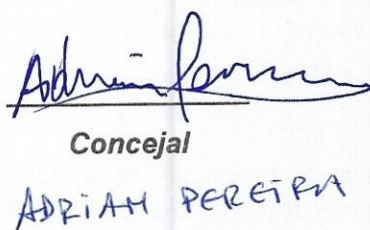 Adrian Pereira
Concejal
ADRIAN PEREIRA